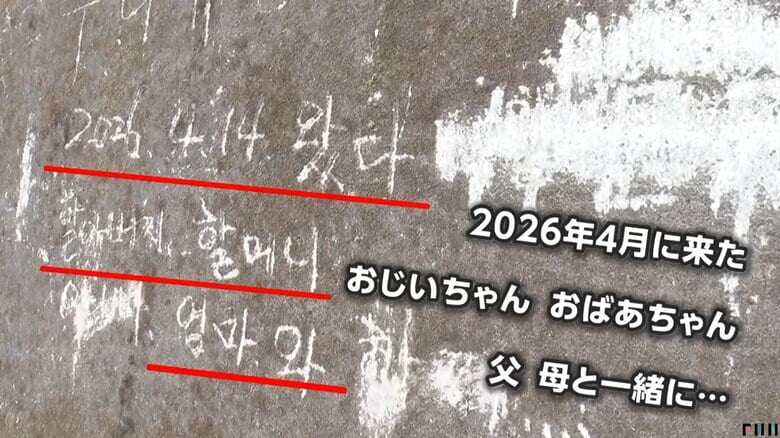 2026. 4. 14 왔다
할아버지, 할머니
엄마 와
2026年4月に来た
おじいちゃん おばあちゃん
父 母と一緒に…